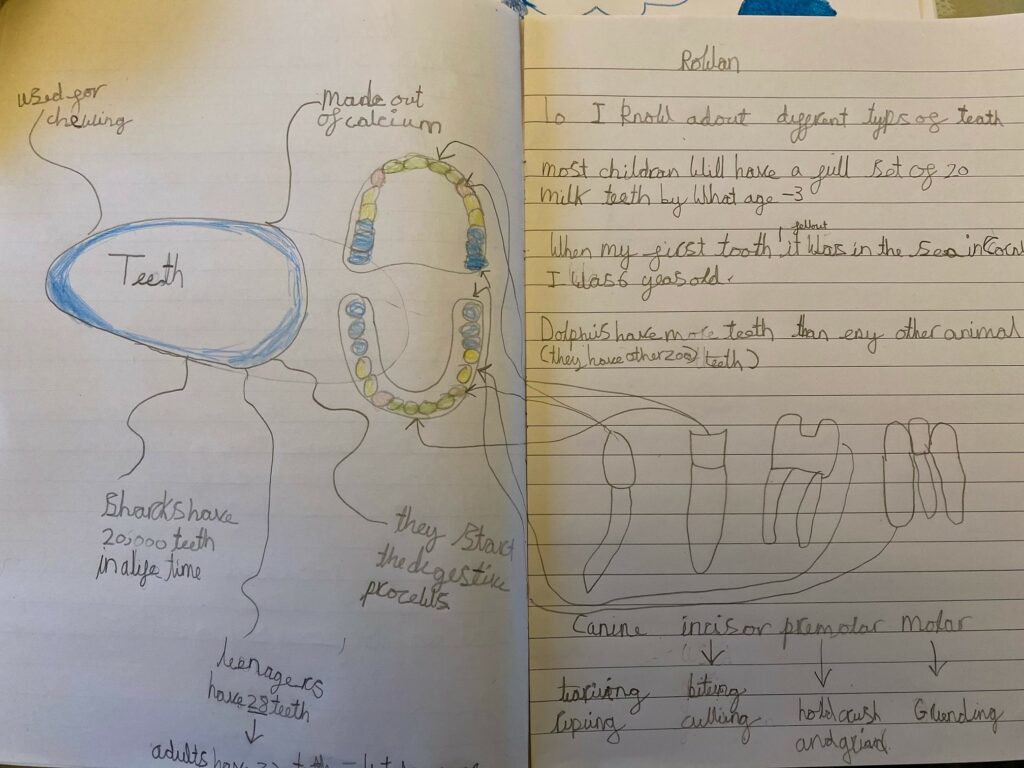 used for
chewing
made out
of calcium
Teeth
Sharks have
20,000 teeth
in a life time
they start
the digestive
process
teenagers
have 28 teeth
adults have
Rowan
Lo I know adout different typs of teath
most children will have a full set of 20
milk teeth by what age - 3
When my first tooth fellout it was in the sea in Corn
I was 6 yeas old.
Dolphis have more teeth than eny other animal
(they have other 200 teeth)
Canine incisor premolar molar
biteing
hold crush Grinding
and